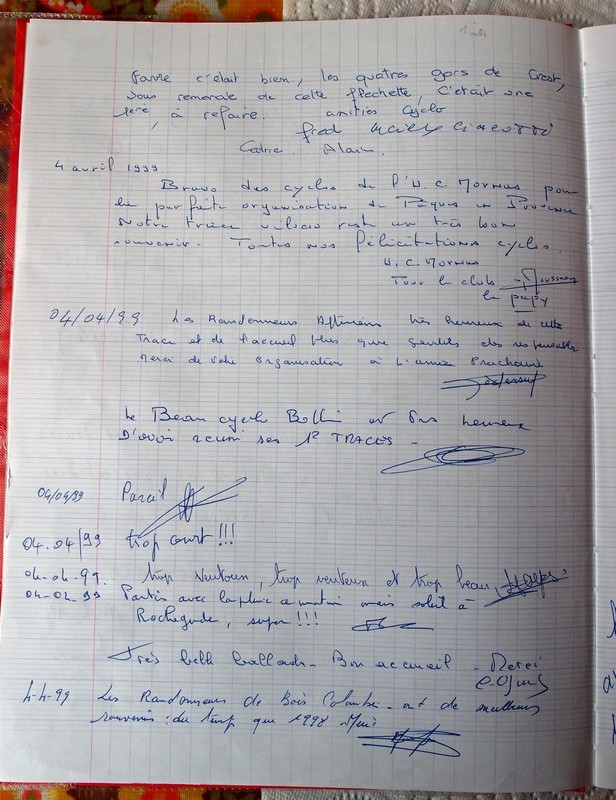 c'était bien, les quatres gars de Crest,
vous remercie de cette flechette, C'était une
1ère, à refaire. amitiés cyclo
fred
Cédric Alain.
4 avril 1999
Bravo des cyclos de l'U.C. Mornas pour
la parfaite organisation de Pâques en Provence
Notre trace vélocio reste un très bon
souvenir. Toutes nos félicitations cyclos.
U.C. Mornas
Tour le club
le papy
04/04/99 Les Randonneurs très heureux de cette
Trace et de l'accueil plus que gentils des responsables
Merci de votre Organisation à L'année Prochaine
Le Beau cyclo est très heureux
D'avoir réussi ses 1º TRACES -
04/04/99 Pareil
04.04/99 trop court!!!
04.04.99. trop Ventoux, trop venteux et trop beau,
04-04-99 Partis avec la pluie ce matin mais soleil à
Rochegude, super!!!
Très belle ballade - Bon accueil - Merci
4-4-99 Les Randonneurs de Bois Colombes - de meilleurs
souvenirs : du temps que 1998